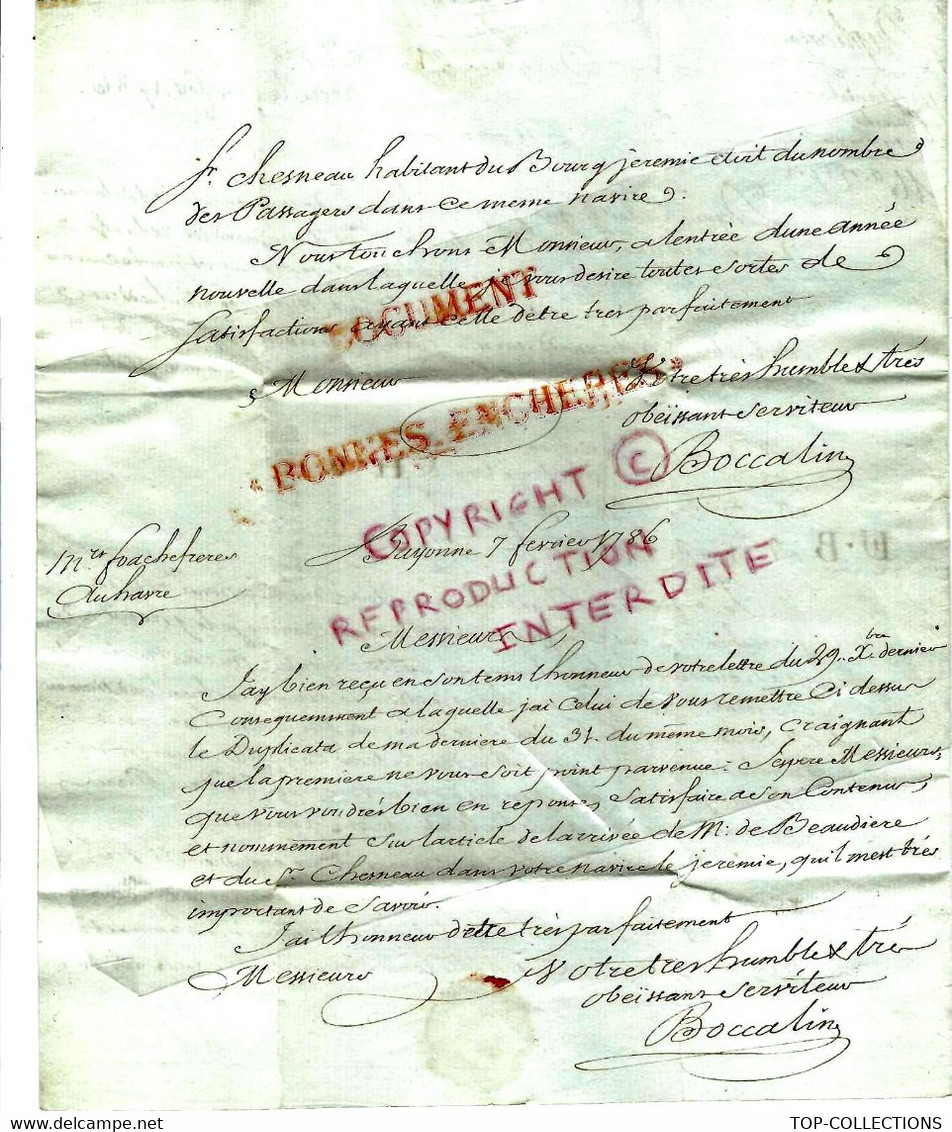 Sr. Chesneau habitant du Bourg jeremie etoit du nombre
des Passagers dans ce meme navire.
Nous touchons Monsieur, a lentrée dune année
nouvelle dans laquelle je vous desire toutes sortes de
Satisfactions ayant celle detre tres parfaitement
DOCUMENT
Monsieur
Votre très humble & très
obeïssant Serviteur
Boccalin
« BONNES ENCHERES »
COPYRIGHT ©
REPRODUCTION
INTERDITE
Bayonne 7 fevrier 1786
Mrs. foache freres
du havre
Messieurs
Jay bien reçu en son tems lhonneur de votre lettre du 29. Xbre dernier
Consequemment a laquelle jai Celui de vous remettre Ci dessus
le Duplicata de ma derniere du 31. du même mois, craignant
que la premiere ne vous soit point parvenue. Jespere Messieurs,
que vous voudrés bien en reponse, satisfaire a son Contenu,
et nommément sur larticle de larrivée de M: de Beaudiere
et du Sr. Chesneau dans votre navire le jeremie, quil mest très
important de Savoir.
Jai lhonneur dettre très parfaitement
Messieurs
Votre tres humble & très
obeïssant Serviteur
Boccalin
TOP-COLLECTIONS